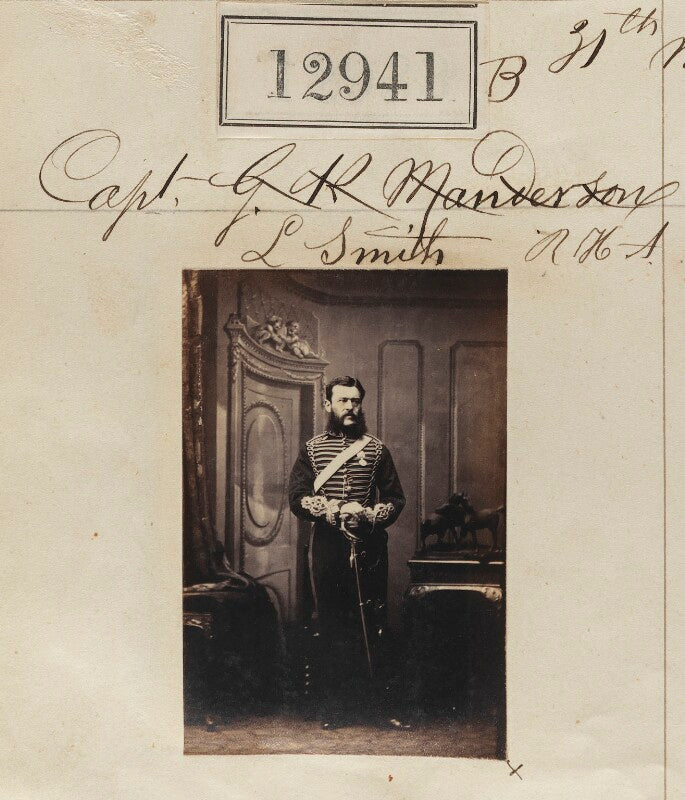 12941 B 31th
Capt. G. R. Manderson
L Smith R H A
x